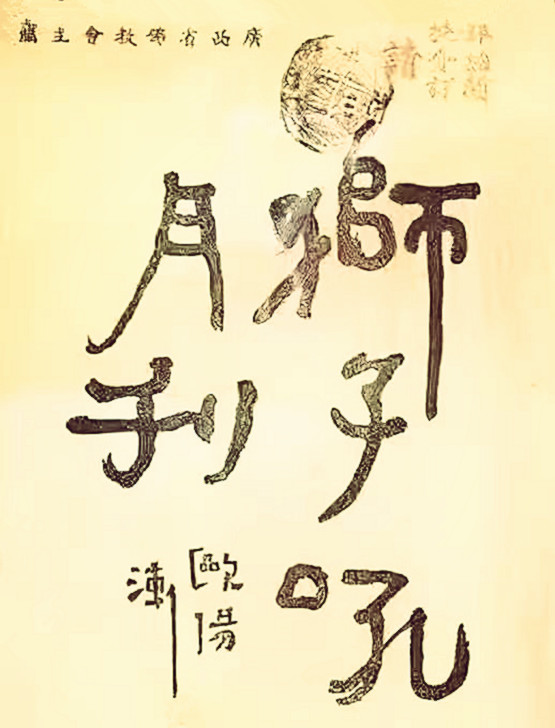 廣西省佛教會主
獅子吼
月刊
歐陽
漸